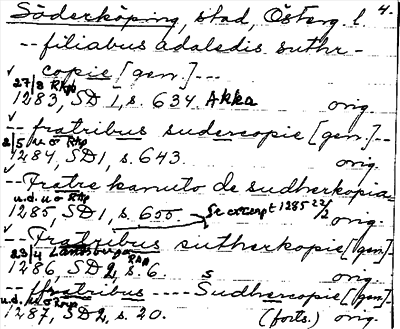 Söderköping, stad, Österg. l. 4.
-- filiabus adaledis suthr-
copie [gen.] ---
27/8 Rkp
1283, SD 1, s. 634. Akka orig.
-- fratribus sudercopie [gen.] --
2/5 u o Rkp
1284, SD 1, s. 643. orig.
-- Fratre kanuto de sudherkopia --
u.d. u o Rkp
1285, SD 1, s. 600. Se excerpt 1285 22/2 orig.
-- Fratribus sutherkopie [gen.]
23/4 Rkp
1286, SD 2, s. 6. orig.
-- ffratribus ---- Sudhercopie [gen.] -
u.d. u o Rkp
1287, SD 2, s. 20. (forts.) orig.